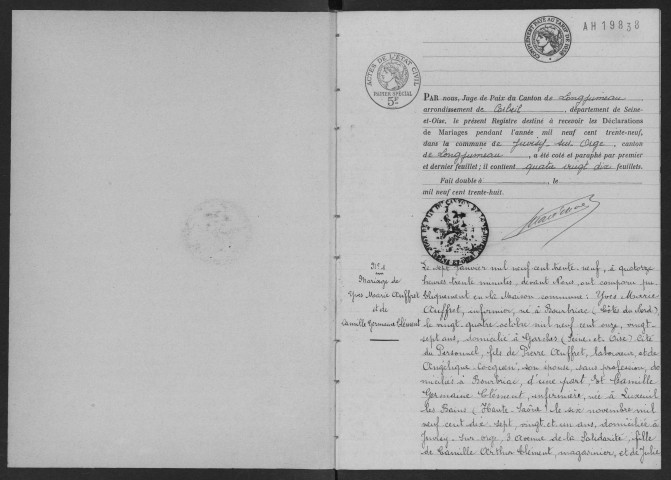 AH19838
COMPLEMENT PAYÉ AU TARIF DE
ACTES DE L'ÉTAT CIVIL
PAPIER SPÉCIAL
5F
PAR nous, Juge de Paix du Canton de Longjumeau
arrondissement de Corbeil, département de Seine-
et-Oise, le présent Registre destiné à recevoir les Déclarations
de Mariages pendant l'année mil neuf cent trente-neuf,
dans la commune de Juvisy-sur-Orge, canton
de Longjumeau, a été coté et paraphé par premier
et dernier feuillet; il contient quatre vingt dix feuillets.
Fait double à , le
mil neuf cent trente-huit.
N° 1
Mariage de
Yves Marie Auffret
et de
Camille Germaine Clément
Le sept Janvier mil neuf cent trente neuf, à quatorze
heures trente minutes, devant Nous ont comparu pu-
bliquement en la Maison commune: Yves Marie
Auffret, infirmier, né à Bourbriac (Côtes du Nord),
le vingt quatre octobre mil neuf cent onze, vingt-
sept ans, domicilié à Garches (Seine-et-Oise) Cité
du Personnel, fils de Pierre Auffret, laboureur, et de
Angélique son épouse, sans profession, do-
miciliés à Bourbriac, d'une part. Et Camille
Germaine Clément, infirmière, née à Luxeuil
les Bains (Haute-Saône) le six novembre mil
neuf cent dix sept, vingt et un ans, domiciliée à
Juvisy-sur-orge, 3 avenue de la Solidarité, fille
de Camille Arthur Clément, magasinier, et de Julie